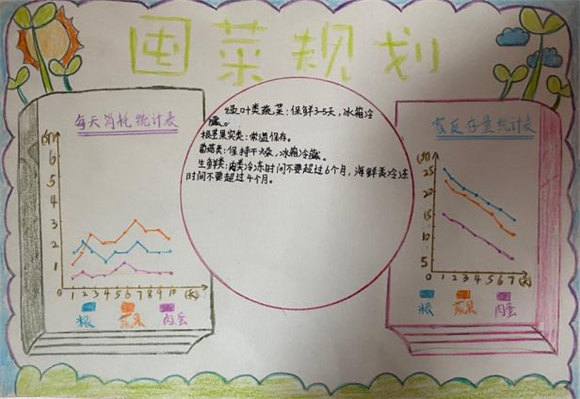 囤菜规划
每天消耗统计表
(斤)
6
5
4
3
2
1
0 1 2 3 4 5 6 7 8 9 10 (天)
粮 蔬果 肉蛋
绿叶类蔬菜:保鲜3-5天,冰箱冷
藏。
根茎果实类:常温保存。
菌菇类:保持干燥,冰箱冷藏。
生鲜类:肉类冷冻时间不要超过6个月,海鲜类冷冻
时间不要超过4个月。
存量统计表
(斤)
25
20
15
10
5
1 2 3 4 5 6 7 (天)
粮 蔬果 肉蛋